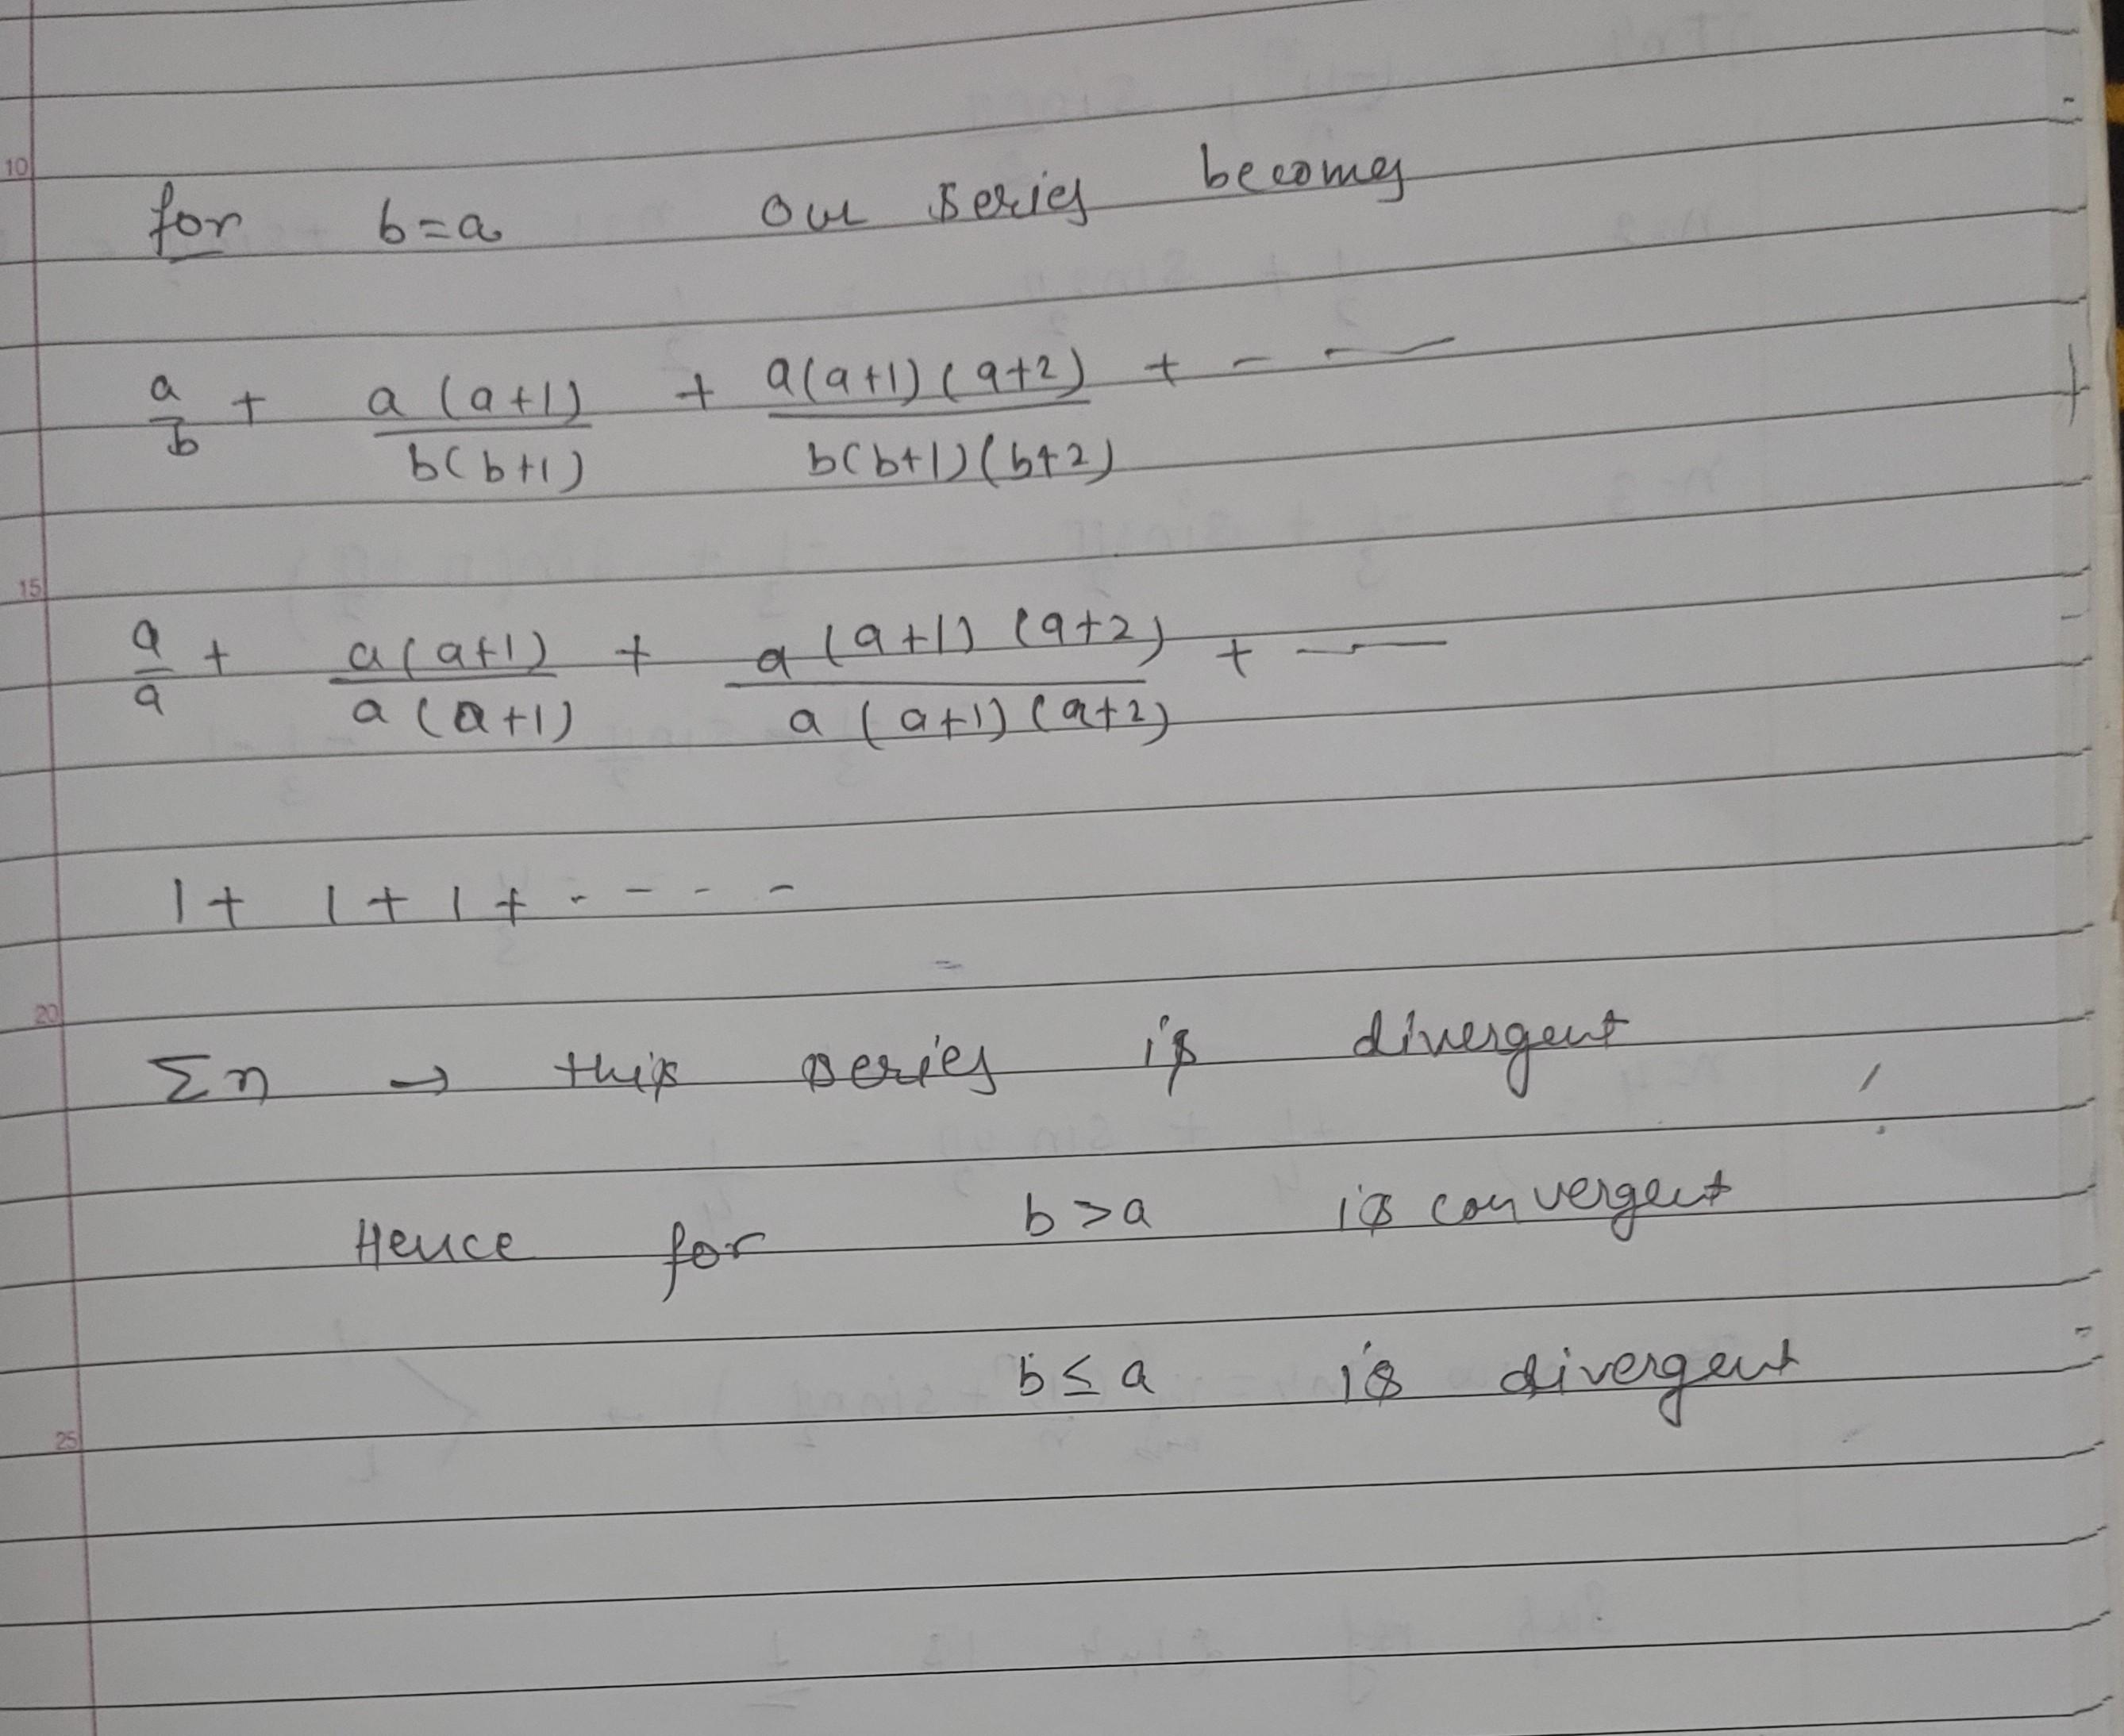 10
for b=a our series becomes
a/b + a(a+1)/b(b+1) + a(a+1)(a+2)/b(b+1)(b+2) + - —
15
a/a + a(a+1)/a(a+1) + a(a+1)(a+2)/a(a+1)(a+2) + - —
1+ 1+1+ - - - -
20
Σn → this series is divergent
Hence for b>a is convergent
b≤a is divergent
25